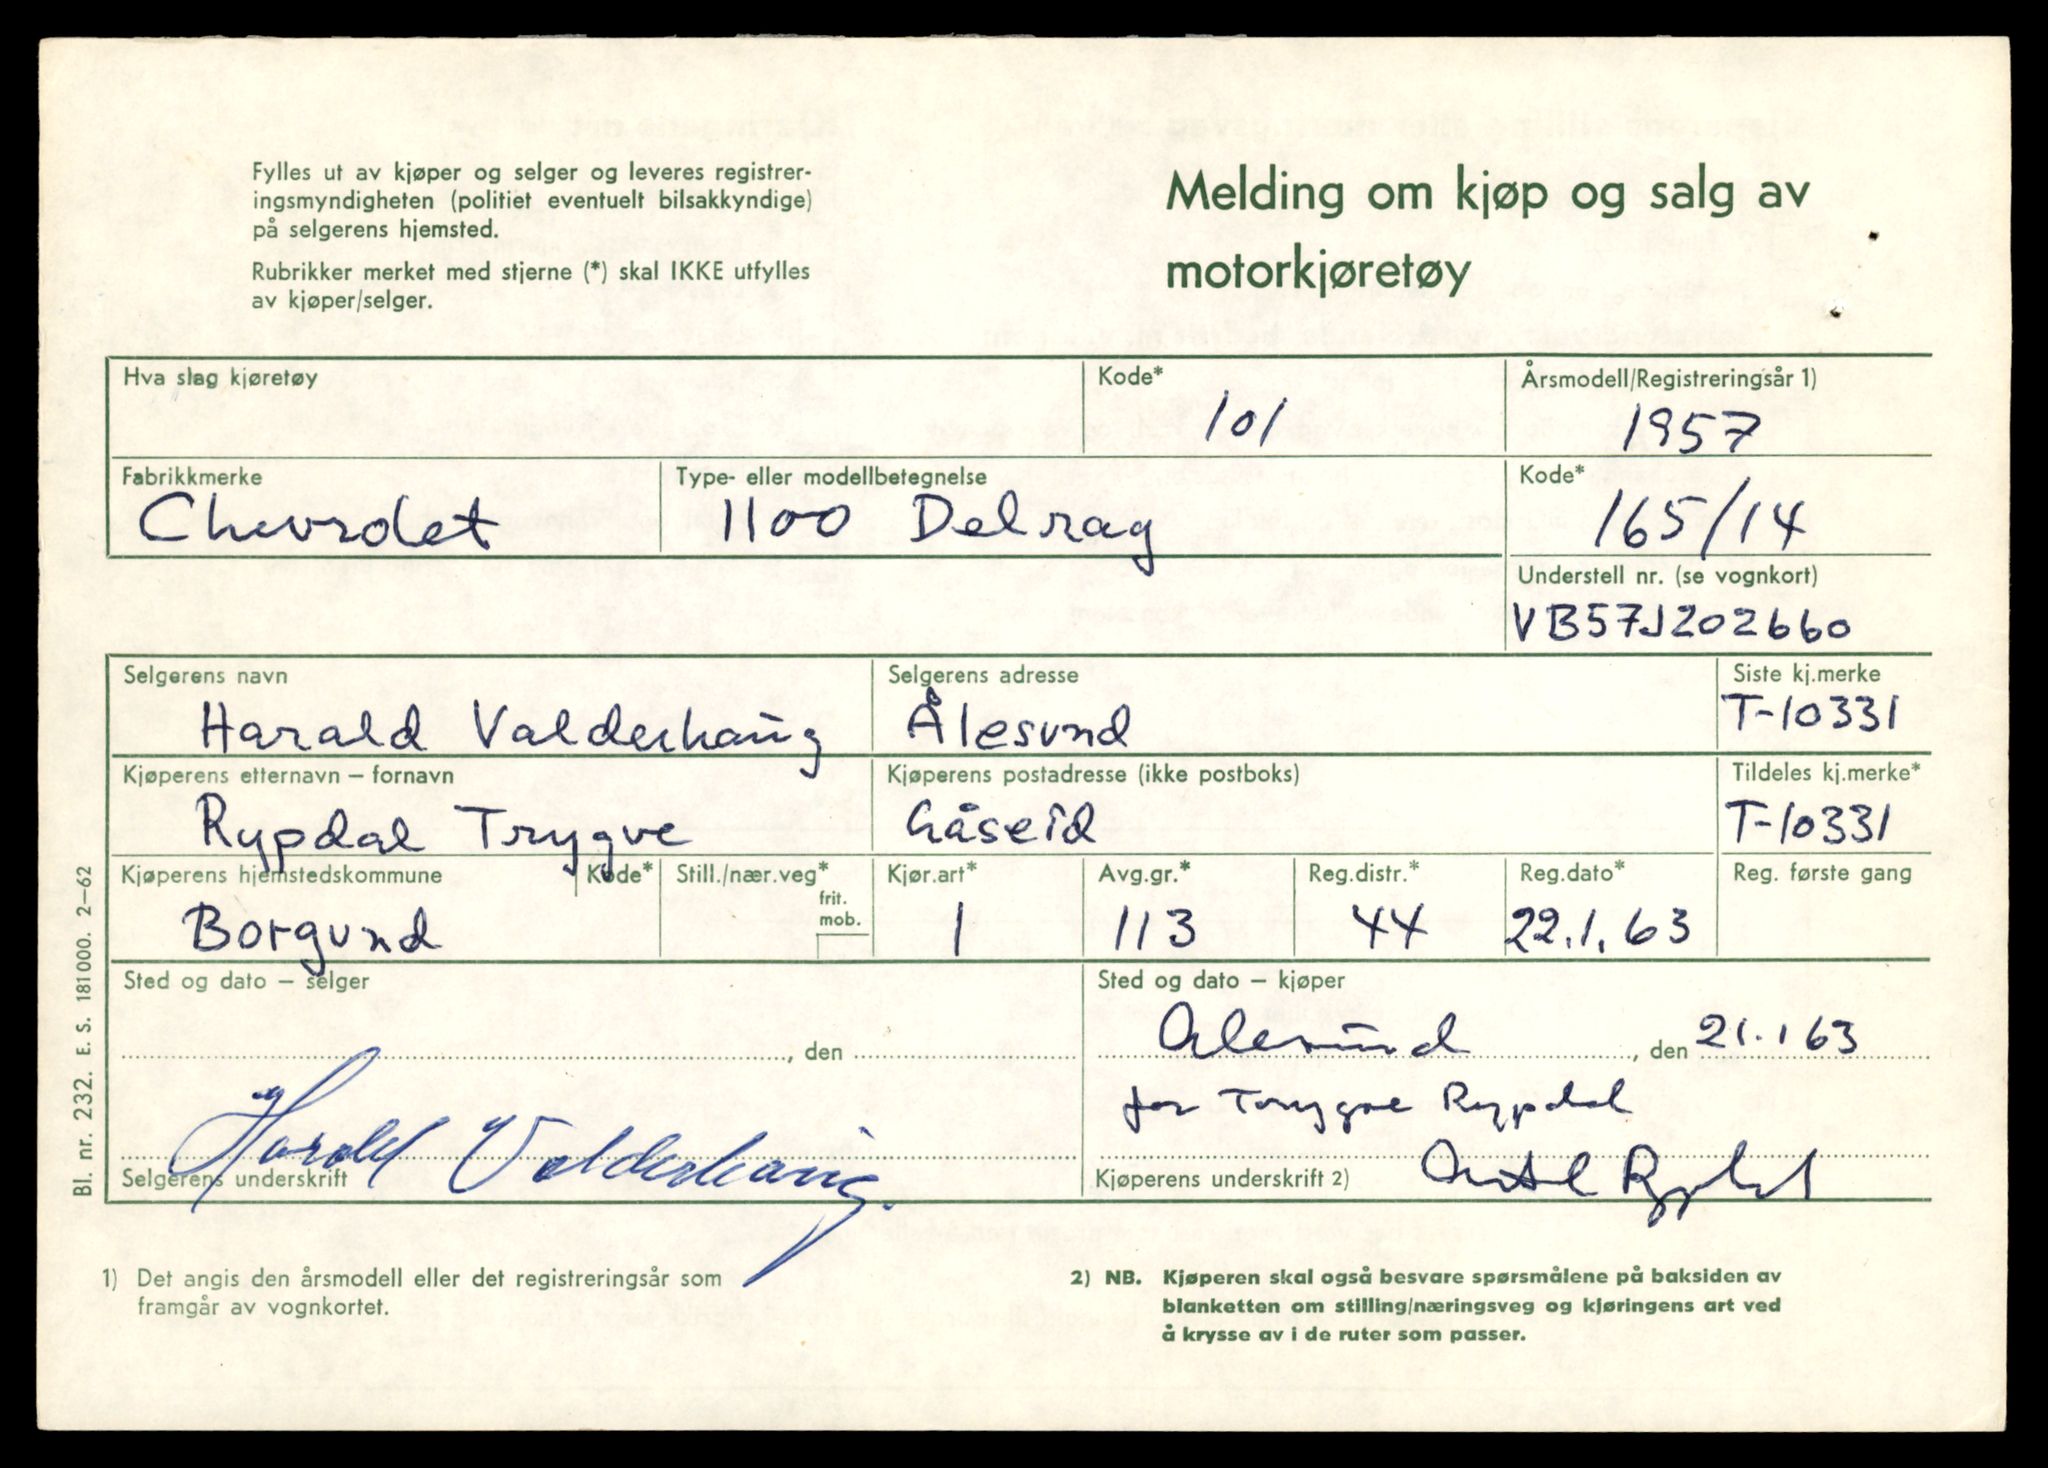 Fylles ut av kjøper og selger og leveres registrer-
ingsmyndigheten (politiet eventuelt bilsakkyndige)
på selgerens hjemsted.
Rubrikker merket med stjerne (*) skal IKKE utfylles
av kjøper/selger.
Melding om kjøp og salg av
motorkjøretøy
Hva slag kjøretøy
Kode*
101
Årsmodell/Registreringsår 1)
1957
Fabrikkmerke
Chevrolet
Type- eller modellbetegnelse
1100 Delray
Kode*
165/14
Understell nr. (se vognkort)
VB57J202660
Selgerens navn
Harald Valderhaug
Selgerens adresse
Ålesund
Siste kj.merke
T-10331
Kjøperens etternavn – fornavn
Rypdal Trygve
Kjøperens postadresse (ikke postboks)
Gåseid
Tildeles kj.merke*
T-10331
Kjøperens hjemstedskommune
Borgund
Kode*
Still./nær.veg*
frit.
mob.
Kjør.art*
1
Avg.gr.*
113
Reg.distr.*
44
Reg.dato*
22.1.63
Reg. første gang
Sted og dato – selger
, den
Harald Valderhaug.
Selgerens underskrift
Sted og dato – kjøper
Ålesund, den 21.1 63
for Trygve Rypdal
Kjøperens underskrift 2) Rypdal
1) Det angis den årsmodell eller det registreringsår som
framgår av vognkortet.
2) NB. Kjøperen skal også besvare spørsmålene på baksiden av
blanketten om stilling/næringsveg og kjøringens art ved
å krysse av i de ruter som passer.
Bl. nr. 232. E. S. 181000. 2–62